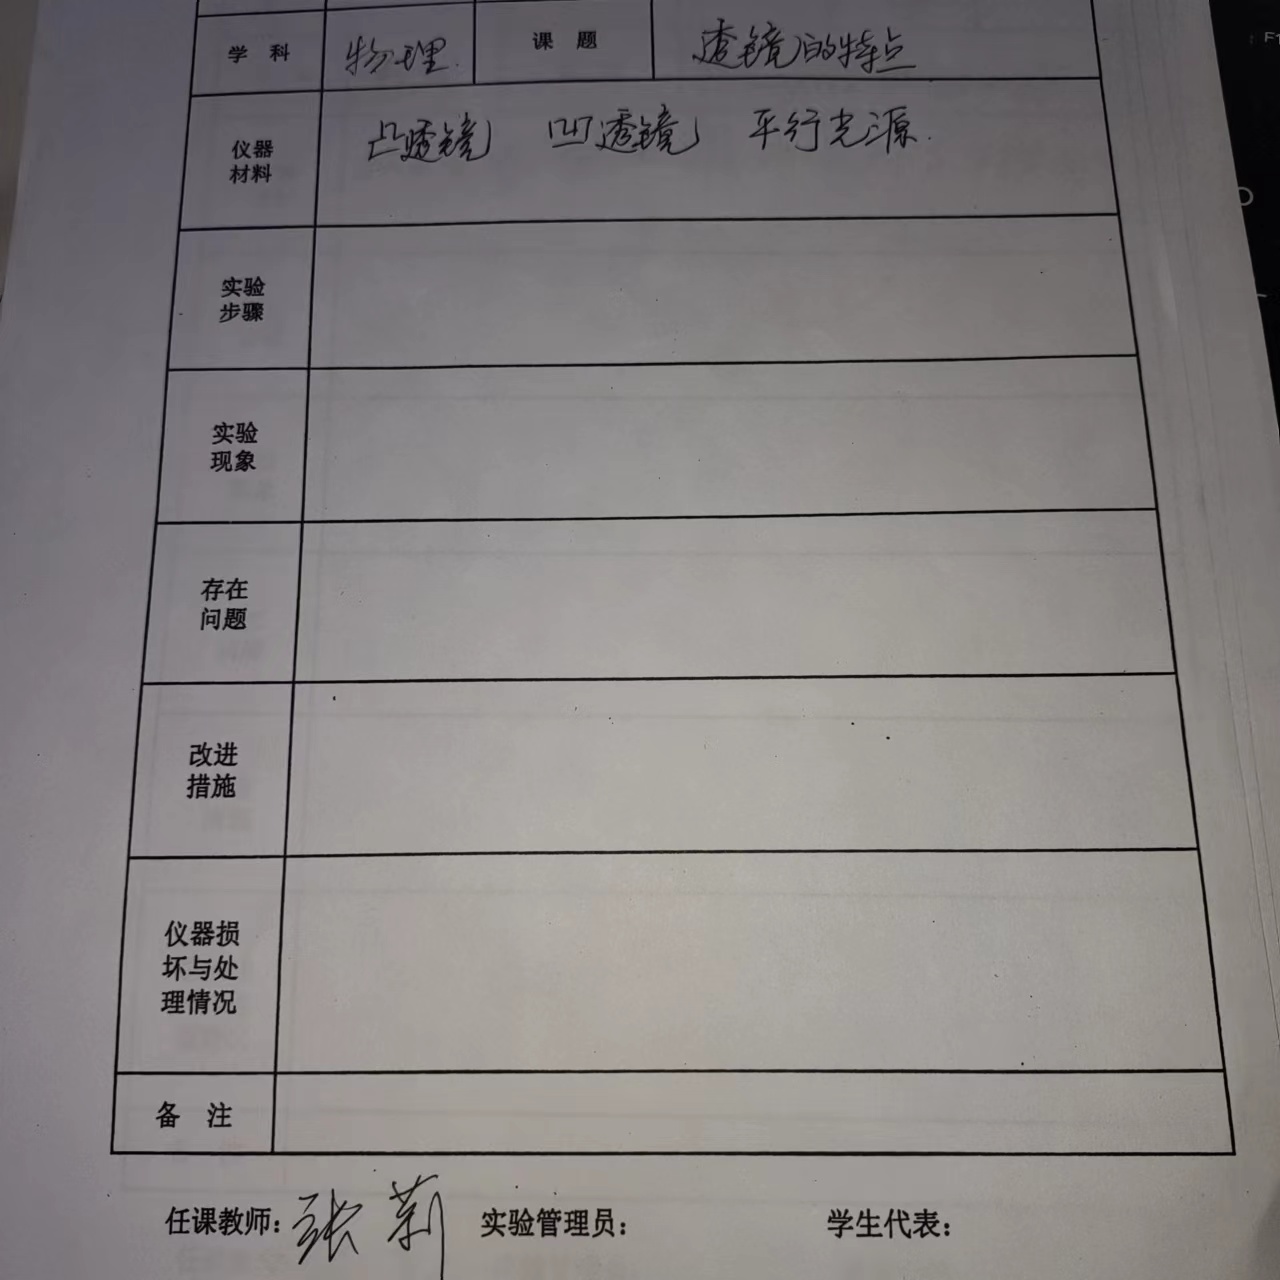 学 科 物理. 课 题 透镜的特点
仪器
材料
凸透镜 凹透镜 平行光源.
实验
步骤
实验
现象
存在
问题
改进
措施
仪器损
坏与处
理情况
备 注
任课教师: 张莉 实验管理员: 学生代表:
F1